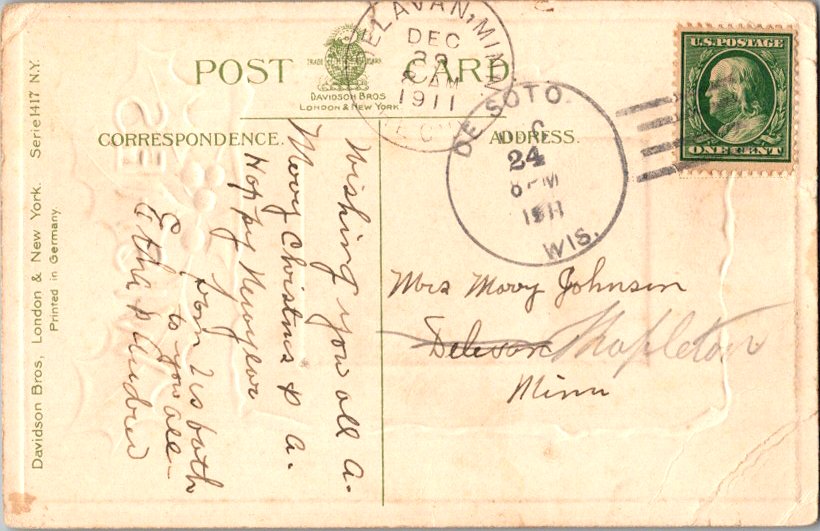 POST CARD
TRADE MARK
DAVIDSON BROS
LONDON & NEW YORK
DELAVAN, MINN
DEC
AM
1911
U.S. POSTAGE
ONE CENT
DE SOTO.
24
PM
1911
WIS.
CORRESPONDENCE.
ADDRESS.
Davidson Bros, London & New York. Serie 1417 N.Y.
Printed in Germany.
Wishing you all a.
Mery Christmas & a.
Happy Newyear
from us both
to you all—
Etha & Andrew
Mrs Mary Johnson
Delevan Mapleton
Minn